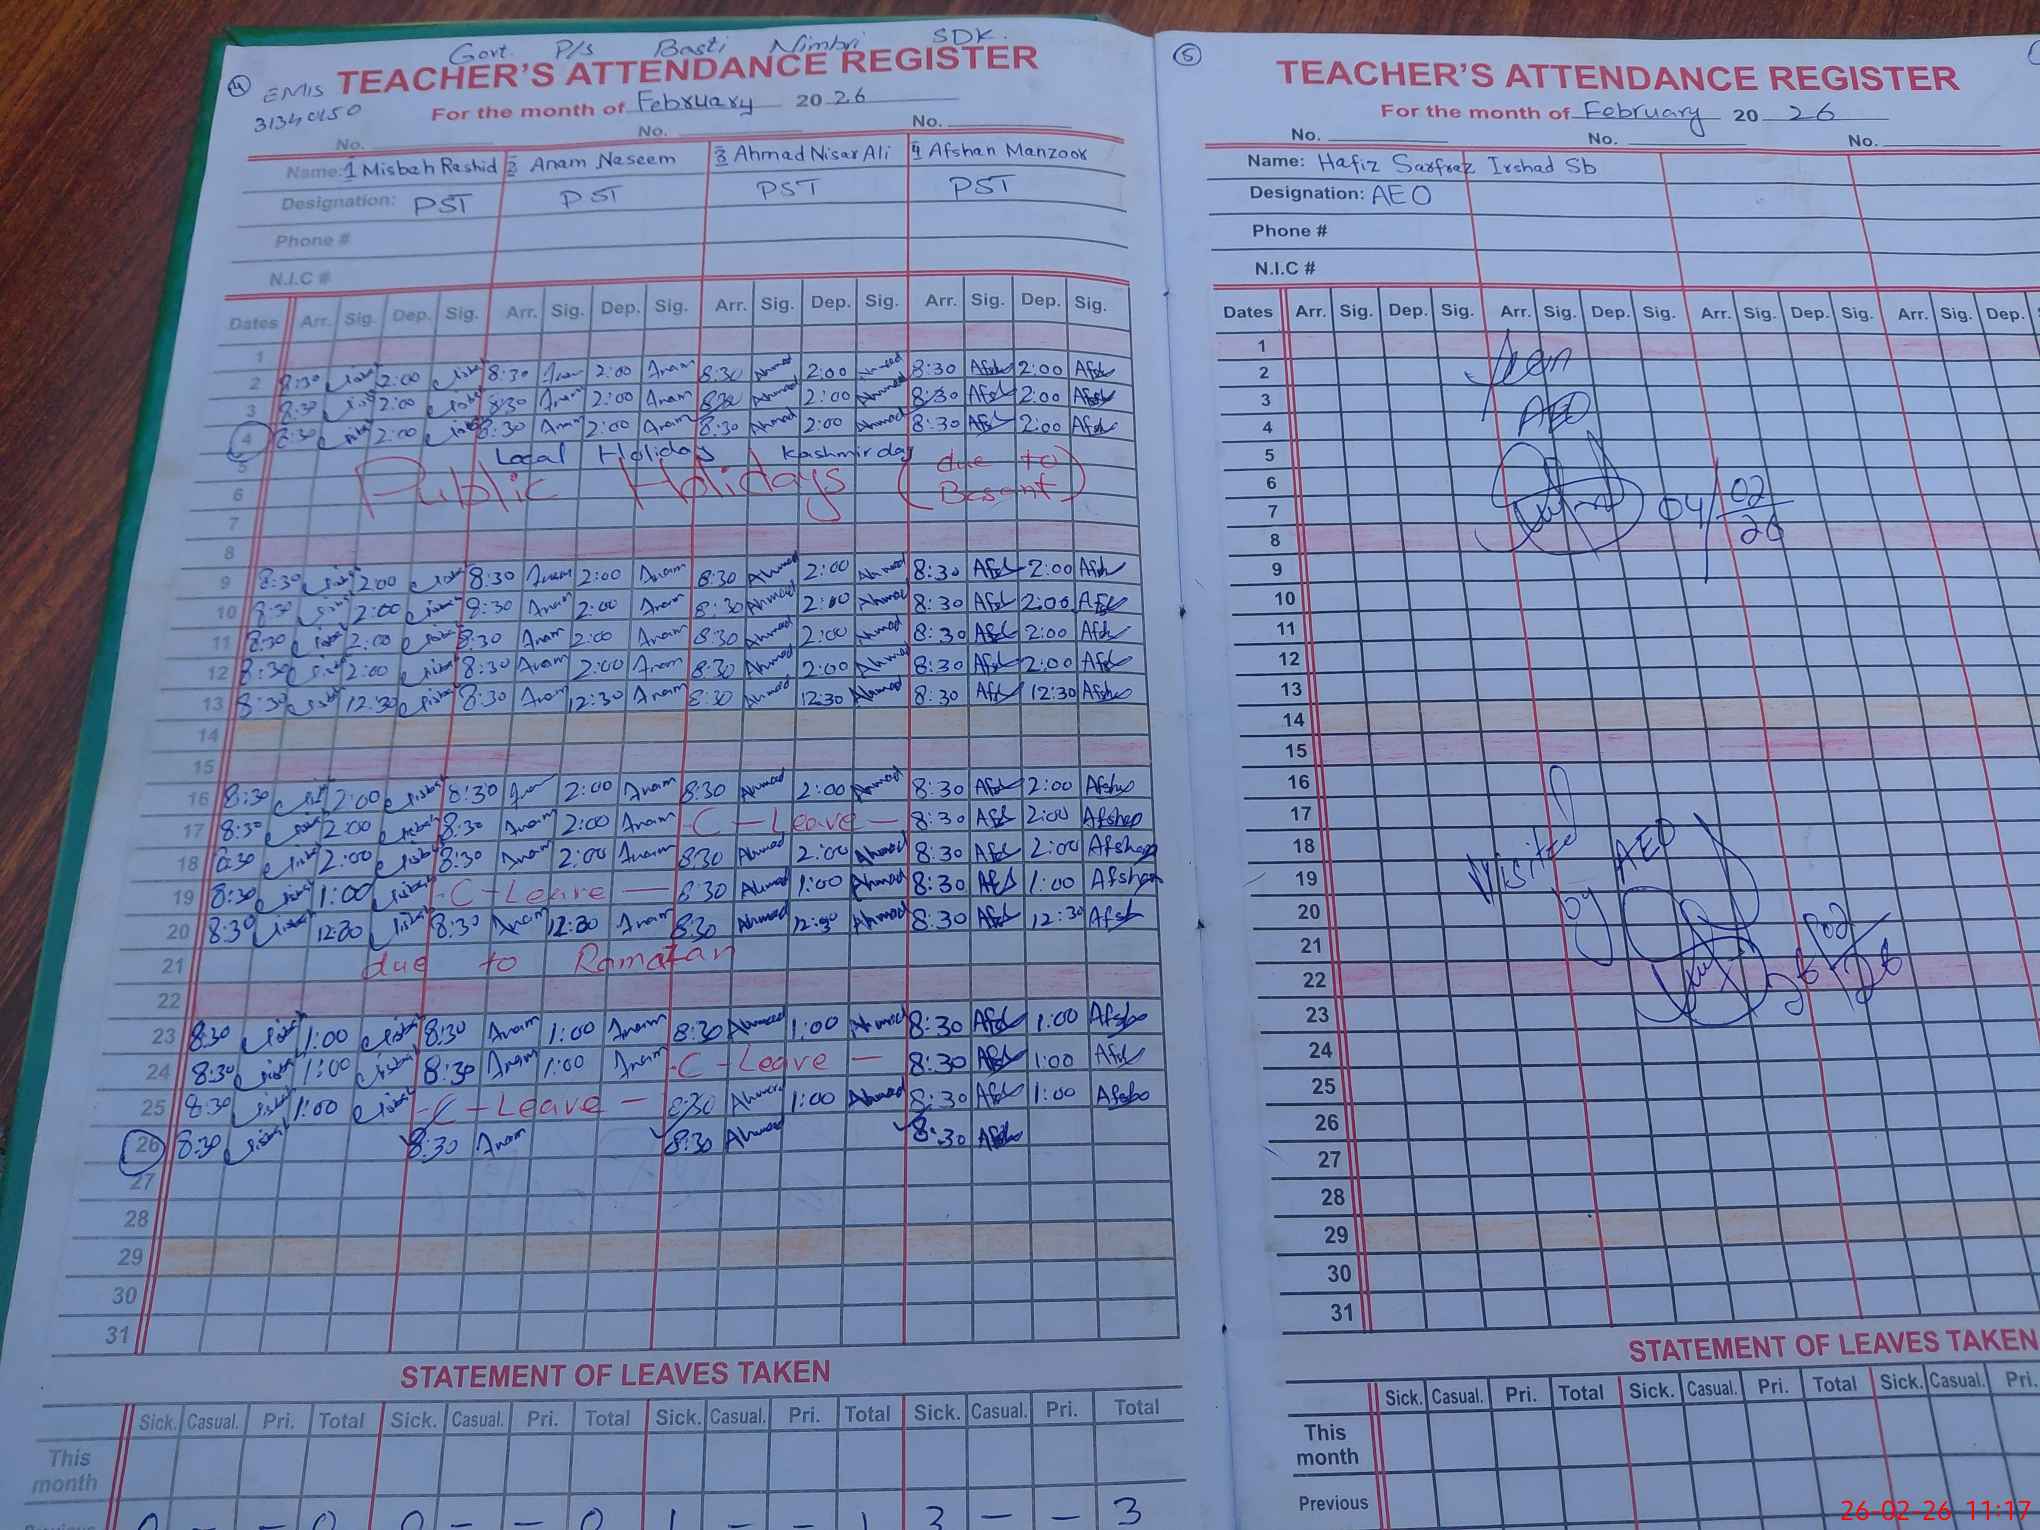 Govt. P/s Basti Nimbri SDK.
4 EMIS TEACHER'S ATTENDANCE REGISTER
31340150 For the month of February 2026
No. No. No.
Name: 1 Misbah Rashid 2 Anam Naseem 3 Ahmad Nisar Ali 4 Afshan Manzoor
Designation: PST PST PST PST
Phone #
N.I.C #
Dates Arr. Sig. Dep. Sig. Arr. Sig. Dep. Sig. Arr. Sig. Dep. Sig. Arr. Sig. Dep. Sig.
1
2 8:30 2:00 8:30 Anam 2:00 Anam 8:30 Ahmad 2:00 Ahmad 8:30 Afsh 2:00 Afsh
3 8:30 2:00 8:30 Anam 2:00 Anam 8:30 Ahmad 2:00 Ahmad 8:30 Afsh 2:00 Afsh
4 8:30 2:00 8:30 Anam 2:00 Anam 8:30 Ahmad 2:00 Ahmad 8:30 Afsh 2:00 Afsh
5 Local Holiday Kashmir day
6 Public Holidays (due to Basant)
7
8
9 8:30 2:00 8:30 Anam 2:00 Anam 8:30 Ahmad 2:00 Ahmad 8:30 Afsh 2:00 Afsh
10 8:30 2:00 8:30 Anam 2:00 Anam 8:30 Ahmad 2:00 Ahmad 8:30 Afsh 2:00 Afsh
11 8:30 2:00 8:30 Anam 2:00 Anam 8:30 Ahmad 2:00 Ahmad 8:30 Afsh 2:00 Afsh
12 8:30 2:00 8:30 Anam 2:00 Anam 8:30 Ahmad 2:00 Ahmad 8:30 Afsh 2:00 Afsh
13 8:30 12:30 8:30 Anam 12:30 Anam 8:30 Ahmad 12:30 Ahmad 8:30 Afsh 12:30 Afsha
14
15
16 8:30 2:00 8:30 2:00 Anam 8:30 Ahmad 2:00 Ahmad 8:30 Afsh 2:00 Afsha
17 8:30 2:00 8:30 Anam 2:00 Anam - C - Leave - 8:30 Afsh 2:00 Afshan
18 8:30 2:00 8:30 Anam 2:00 Anam 8:30 Ahmad 2:00 Ahmad 8:30 Afsh 2:00 Afshan
19 8:30 1:00 - C - Leave - 8:30 Ahmad 1:00 Ahmad 8:30 Afsh 1:00 Afshan
20 8:30 12:30 8:30 Anam 12:30 Anam 8:30 Ahmad 12:30 Ahmad 8:30 Afsh 12:30 Afsh
21 due to Ramazan
22
23 8:30 1:00 8:30 Anam 1:00 Anam 8:30 Ahmad 1:00 Ahmad 8:30 Afsh 1:00 Afsha
24 8:30 1:00 8:30 Anam 1:00 Anam - C - Leave - 8:30 Afsh 1:00 Afsh
25 8:30 1:00 - C - Leave - 8:30 Ahmad 1:00 Ahmad 8:30 Afsh 1:00 Afsha
26 8:30 8:30 Anam 8:30 Ahmad 8:30 Afsha
27
28
29
30
31
STATEMENT OF LEAVES TAKEN
Sick. Casual. Pri. Total Sick. Casual. Pri. Total Sick. Casual. Pri. Total Sick. Casual. Pri. Total
This
month
0 - - 0 0 - - 0 1 - - 1 3 - - 3
5
TEACHER'S ATTENDANCE REGISTER
For the month of February 2026
No. No. No.
Name: Hafiz Sarfraz Irshad Sb
Designation: AEO
Phone #
N.I.C #
Dates Arr. Sig. Dep. Sig. Arr. Sig. Dep. Sig. Arr. Sig. Dep. Sig. Arr. Sig. Dep.
1
2 Seen
3
4 AEO
5
6
7 04/02/26
8
9
10
11
12
13
14
15
16
17
18 Visited AEO
19
20 by
21
22 26/02/26
23
24
25
26
27
28
29
30
31
STATEMENT OF LEAVES TAKEN
Sick. Casual. Pri. Total Sick. Casual. Pri. Total Sick. Casual. Pri.
This
month
Previous
26-02-26 11:17